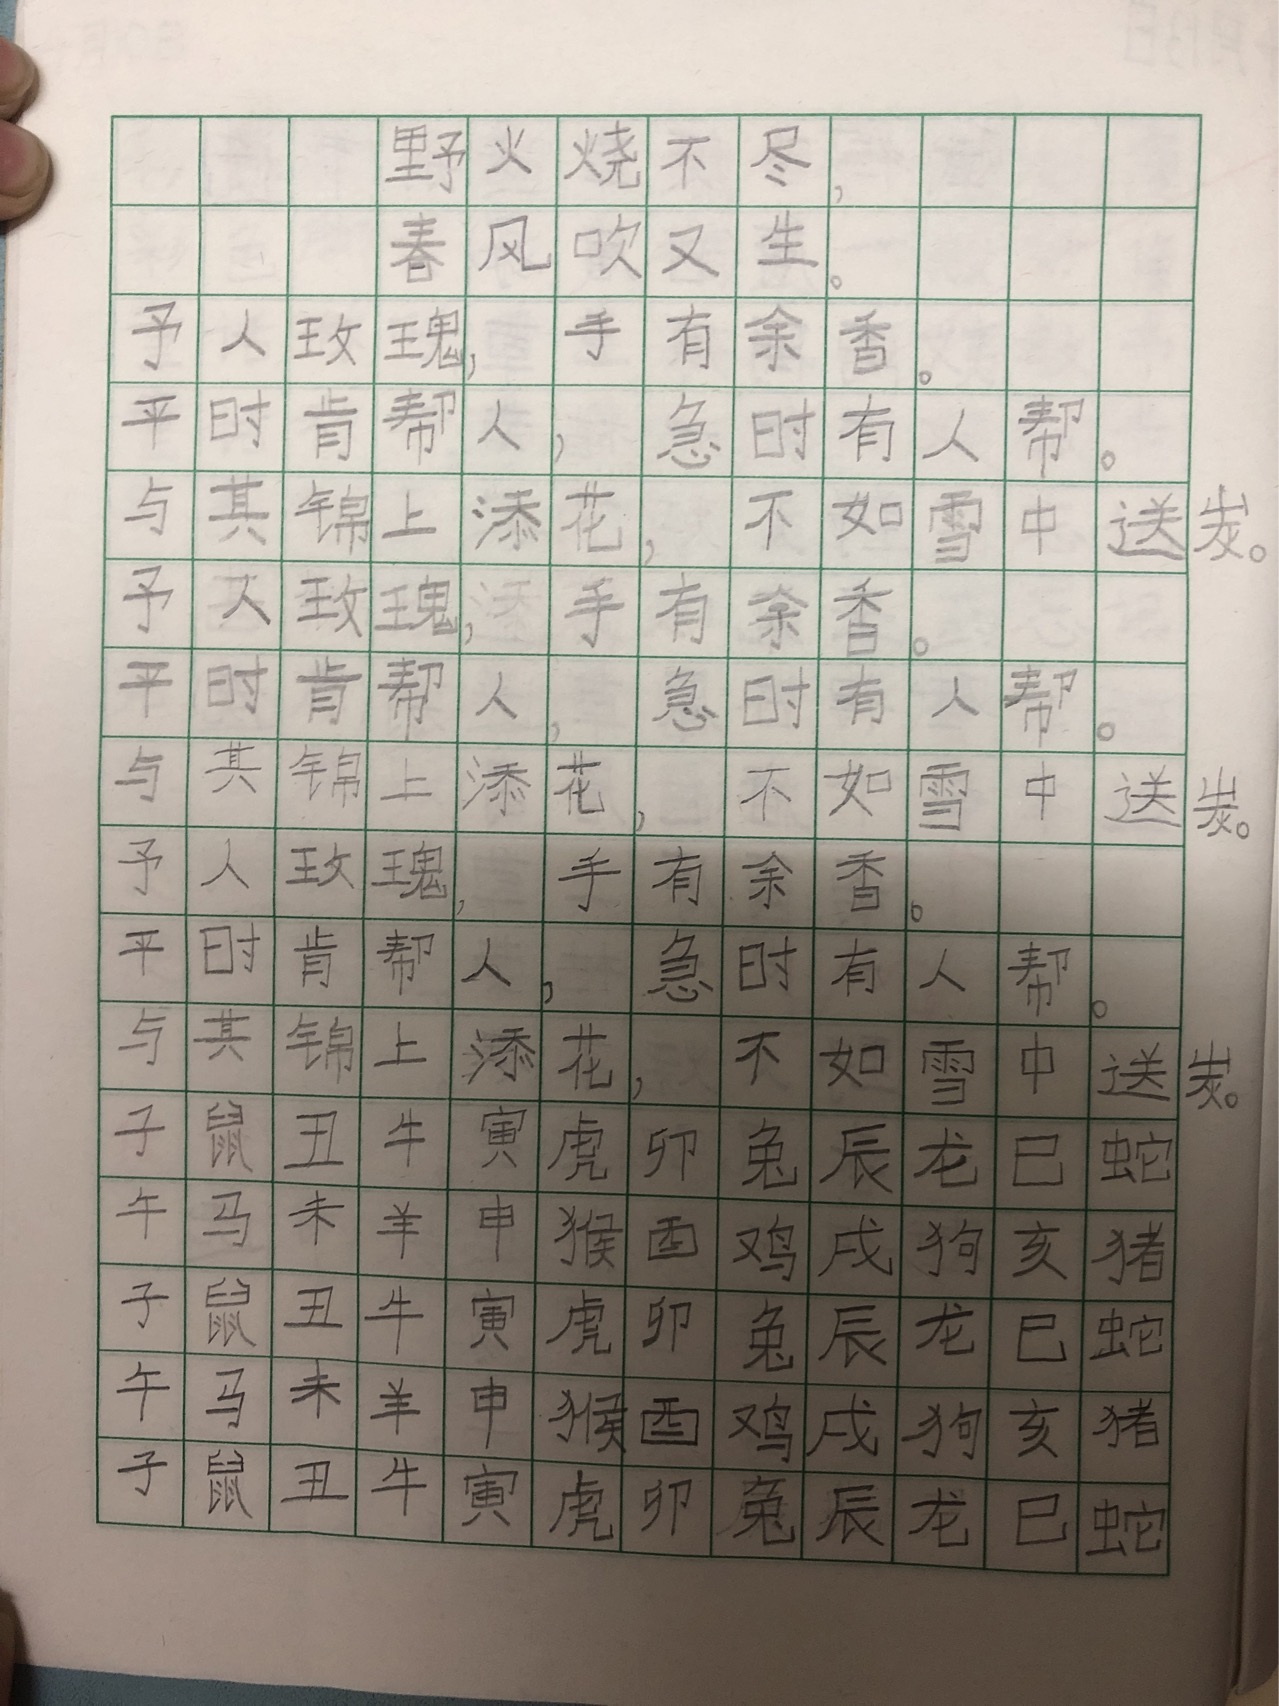 野火烧不尽，
春风吹又生。
予人玫瑰，手有余香。
平时肯帮人，急时有人帮。
与其锦上添花，不如雪中送炭。
予人玫瑰，手有余香。
平时肯帮人，急时有人帮。
与其锦上添花，不如雪中送炭。
予人玫瑰，手有余香。
平时肯帮人，急时有人帮。
与其锦上添花，不如雪中送炭。
子鼠丑牛寅虎卯兔辰龙巳蛇
午马未羊申猴酉鸡戌狗亥猪
子鼠丑牛寅虎卯兔辰龙巳蛇
午马未羊申猴酉鸡戌狗亥猪
子鼠丑牛寅虎卯兔辰龙巳蛇